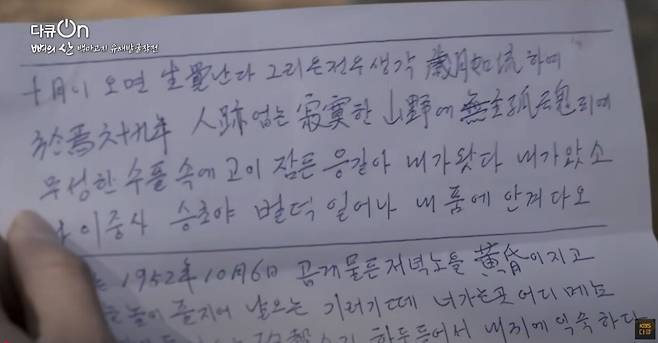 다큐On
뼈의 산 백마고지 유해발굴작전
十月이 오면 生覺난다 그리운전우 생각 歲月如流하여
於焉六十九年 人跡업는 寂寞한 山野에 無主孤魂되여
무성한 수플 속에 고이 잠든 응길아 내가왓다 내가왔소
이중사 승초야 벌덕 일어나 내 품에 안겨다오
1952年 10月6日 곱게물든저녁노을 黃昏이지고
줄지어 날으는 기러기떼 너가는곳 어디메뇨
내지에 익숙하다
KBS
다큐